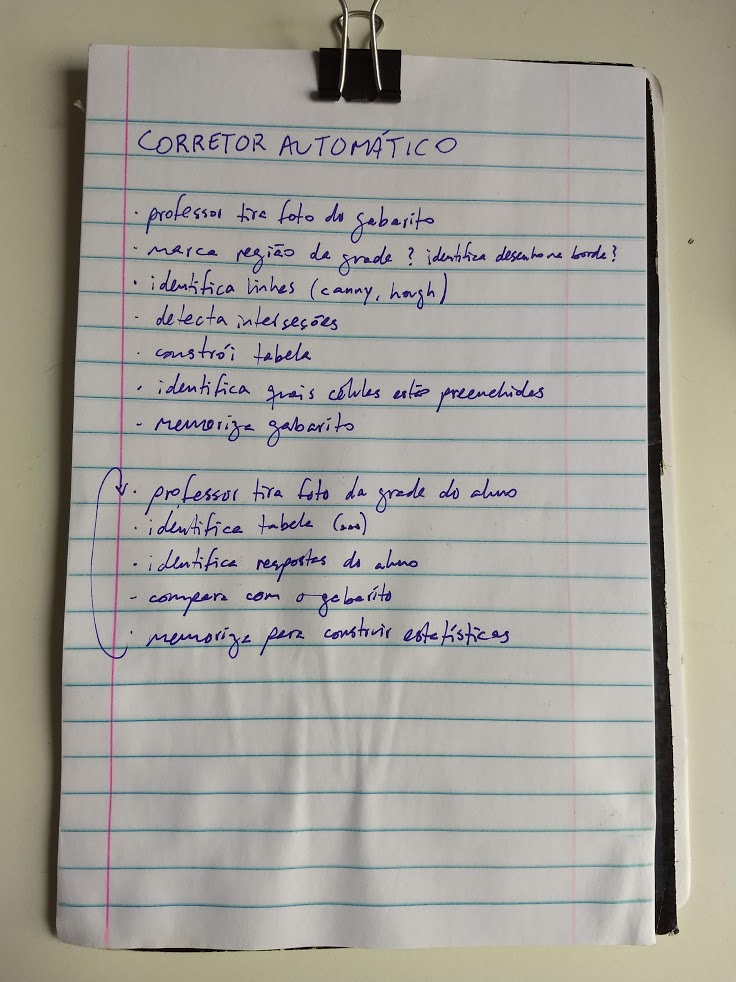 CORRETOR AUTOMÁTICO
· professor tira foto do gabarito
· marca região da grade ? identifica desenho na borda?
· identifica linhas (canny, hough)
· detecta interseções
· constrói tabela
· identifica quais células estão preenchidas
- memoriza gabarito
· professor tira foto da grade do aluno
· identifica tabela (...)
· identifica respostas do aluno
- compara com o gabarito
· memoriza para construir estatísticas